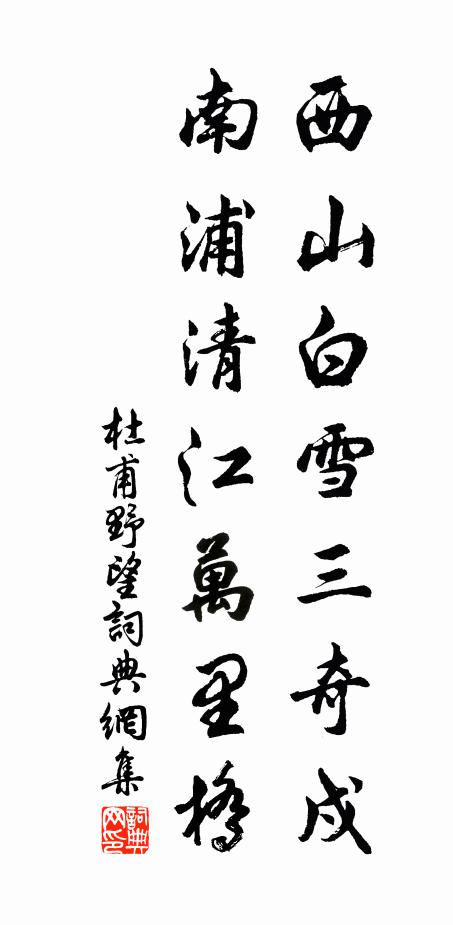 西山白雪三奇戍
南浦清江萬里橋
杜甫野望詞典網集
詞典網印